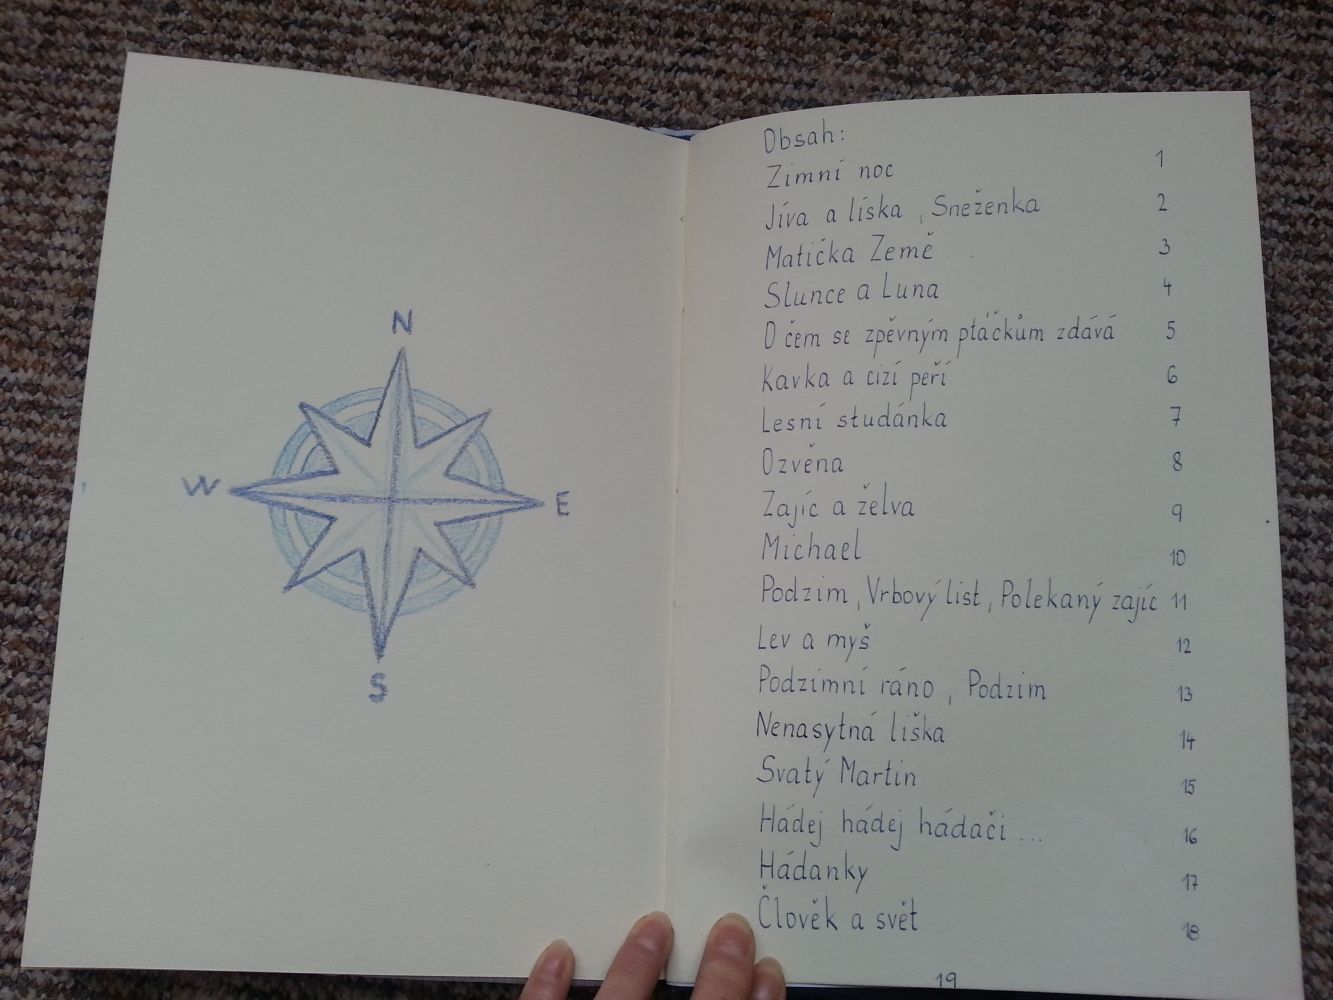 N
W
E
S
Obsah:
Zimní noc 1
Jíva a líska, Sneženka 2
Matička Země 3
Slunce a Luna 4
O čem se zpěvným ptáčkům zdává 5
Kavka a cizí peří 6
Lesní studánka 7
Ozvěna 8
Zajíc a želva 9
Michael 10
Podzim, Vrbový list, Polekaný zajíc 11
Lev a myš 12
Podzimní ráno, Podzim 13
Nenasytná liška 14
Svatý Martin 15
Hádej hádej hádači ... 16
Hádanky 17
Člověk a svět 18
19